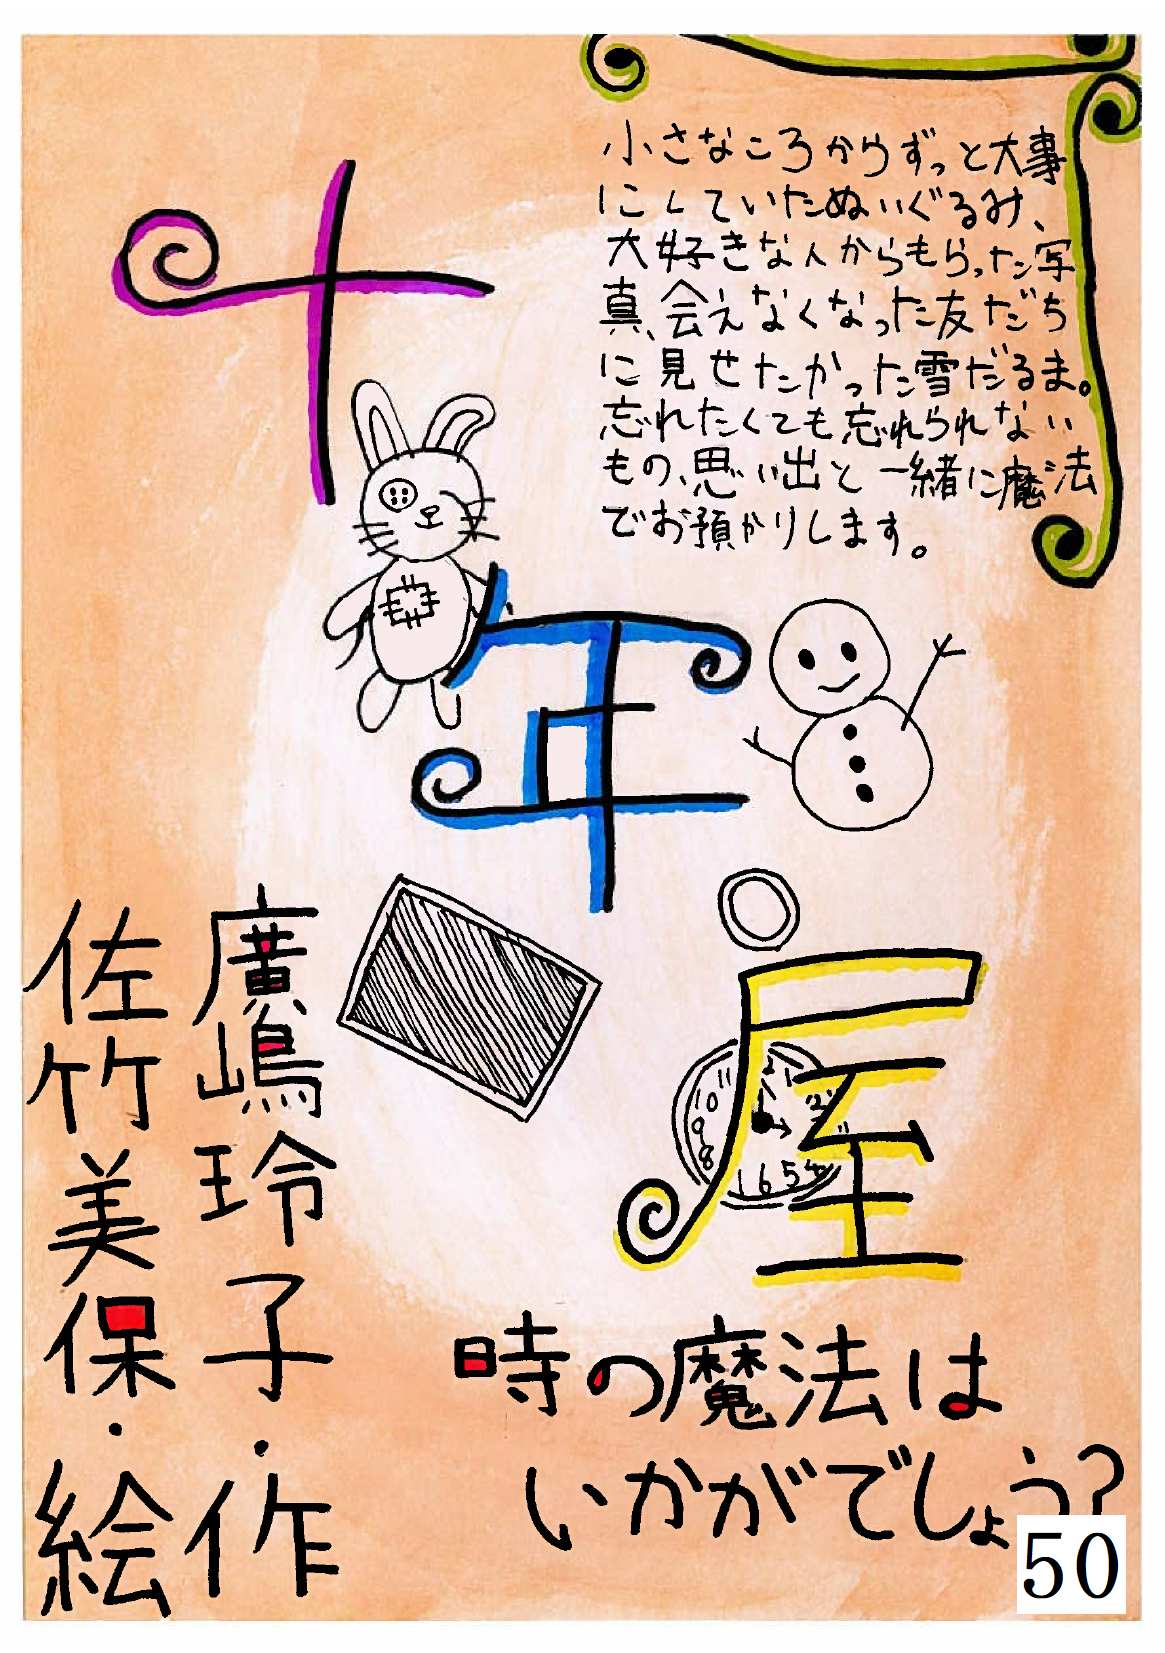 小さなころからずっと大事
にしていたぬいぐるみ、
大好きな人からもらった写
真、会えなくなった友だち
に見せたかった雪だるま。
忘れたくても忘れられない
もの、思い出と一緒に魔法
でお預かりします。
十年屋
11
12
10
9
8
6
5
4
時の魔法は
いかがでしょう?
廣嶋玲子・作
佐竹美保・絵
50